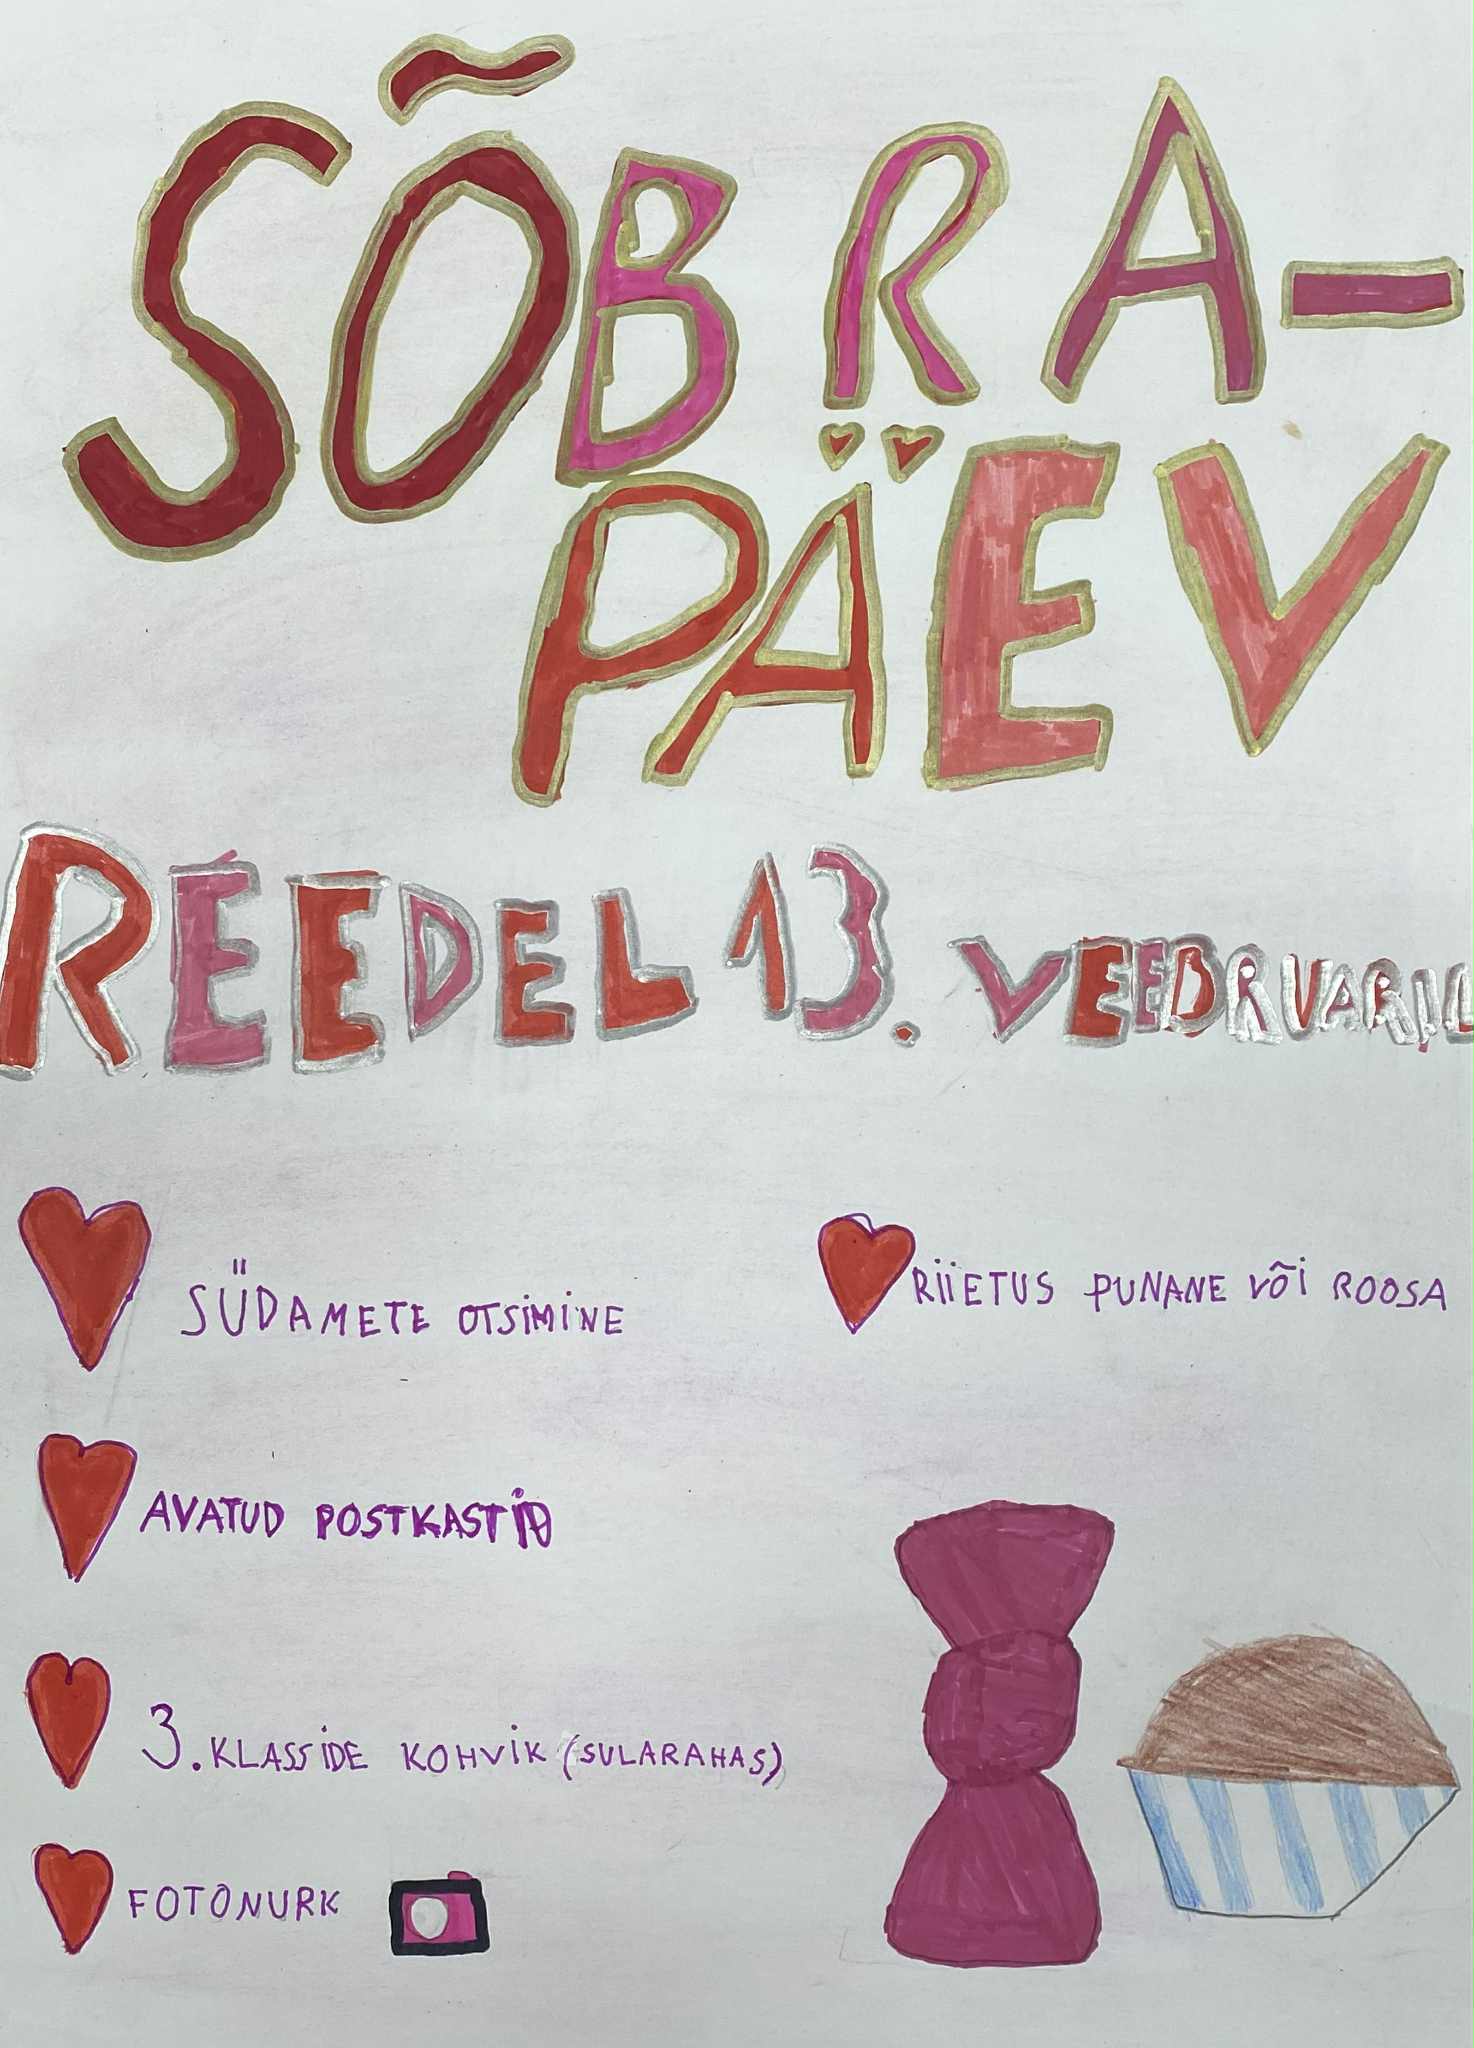 SÕBRA-
PÄEV
REEDEL 13. VEEBRUARIL
SÜDAMETE OTSIMINE
RIIETUS PUNANE VÕI ROOSA
AVATUD POSTKASTID
3. KLASSIDE KOHVIK (SULARAHAS)
FOTONURK